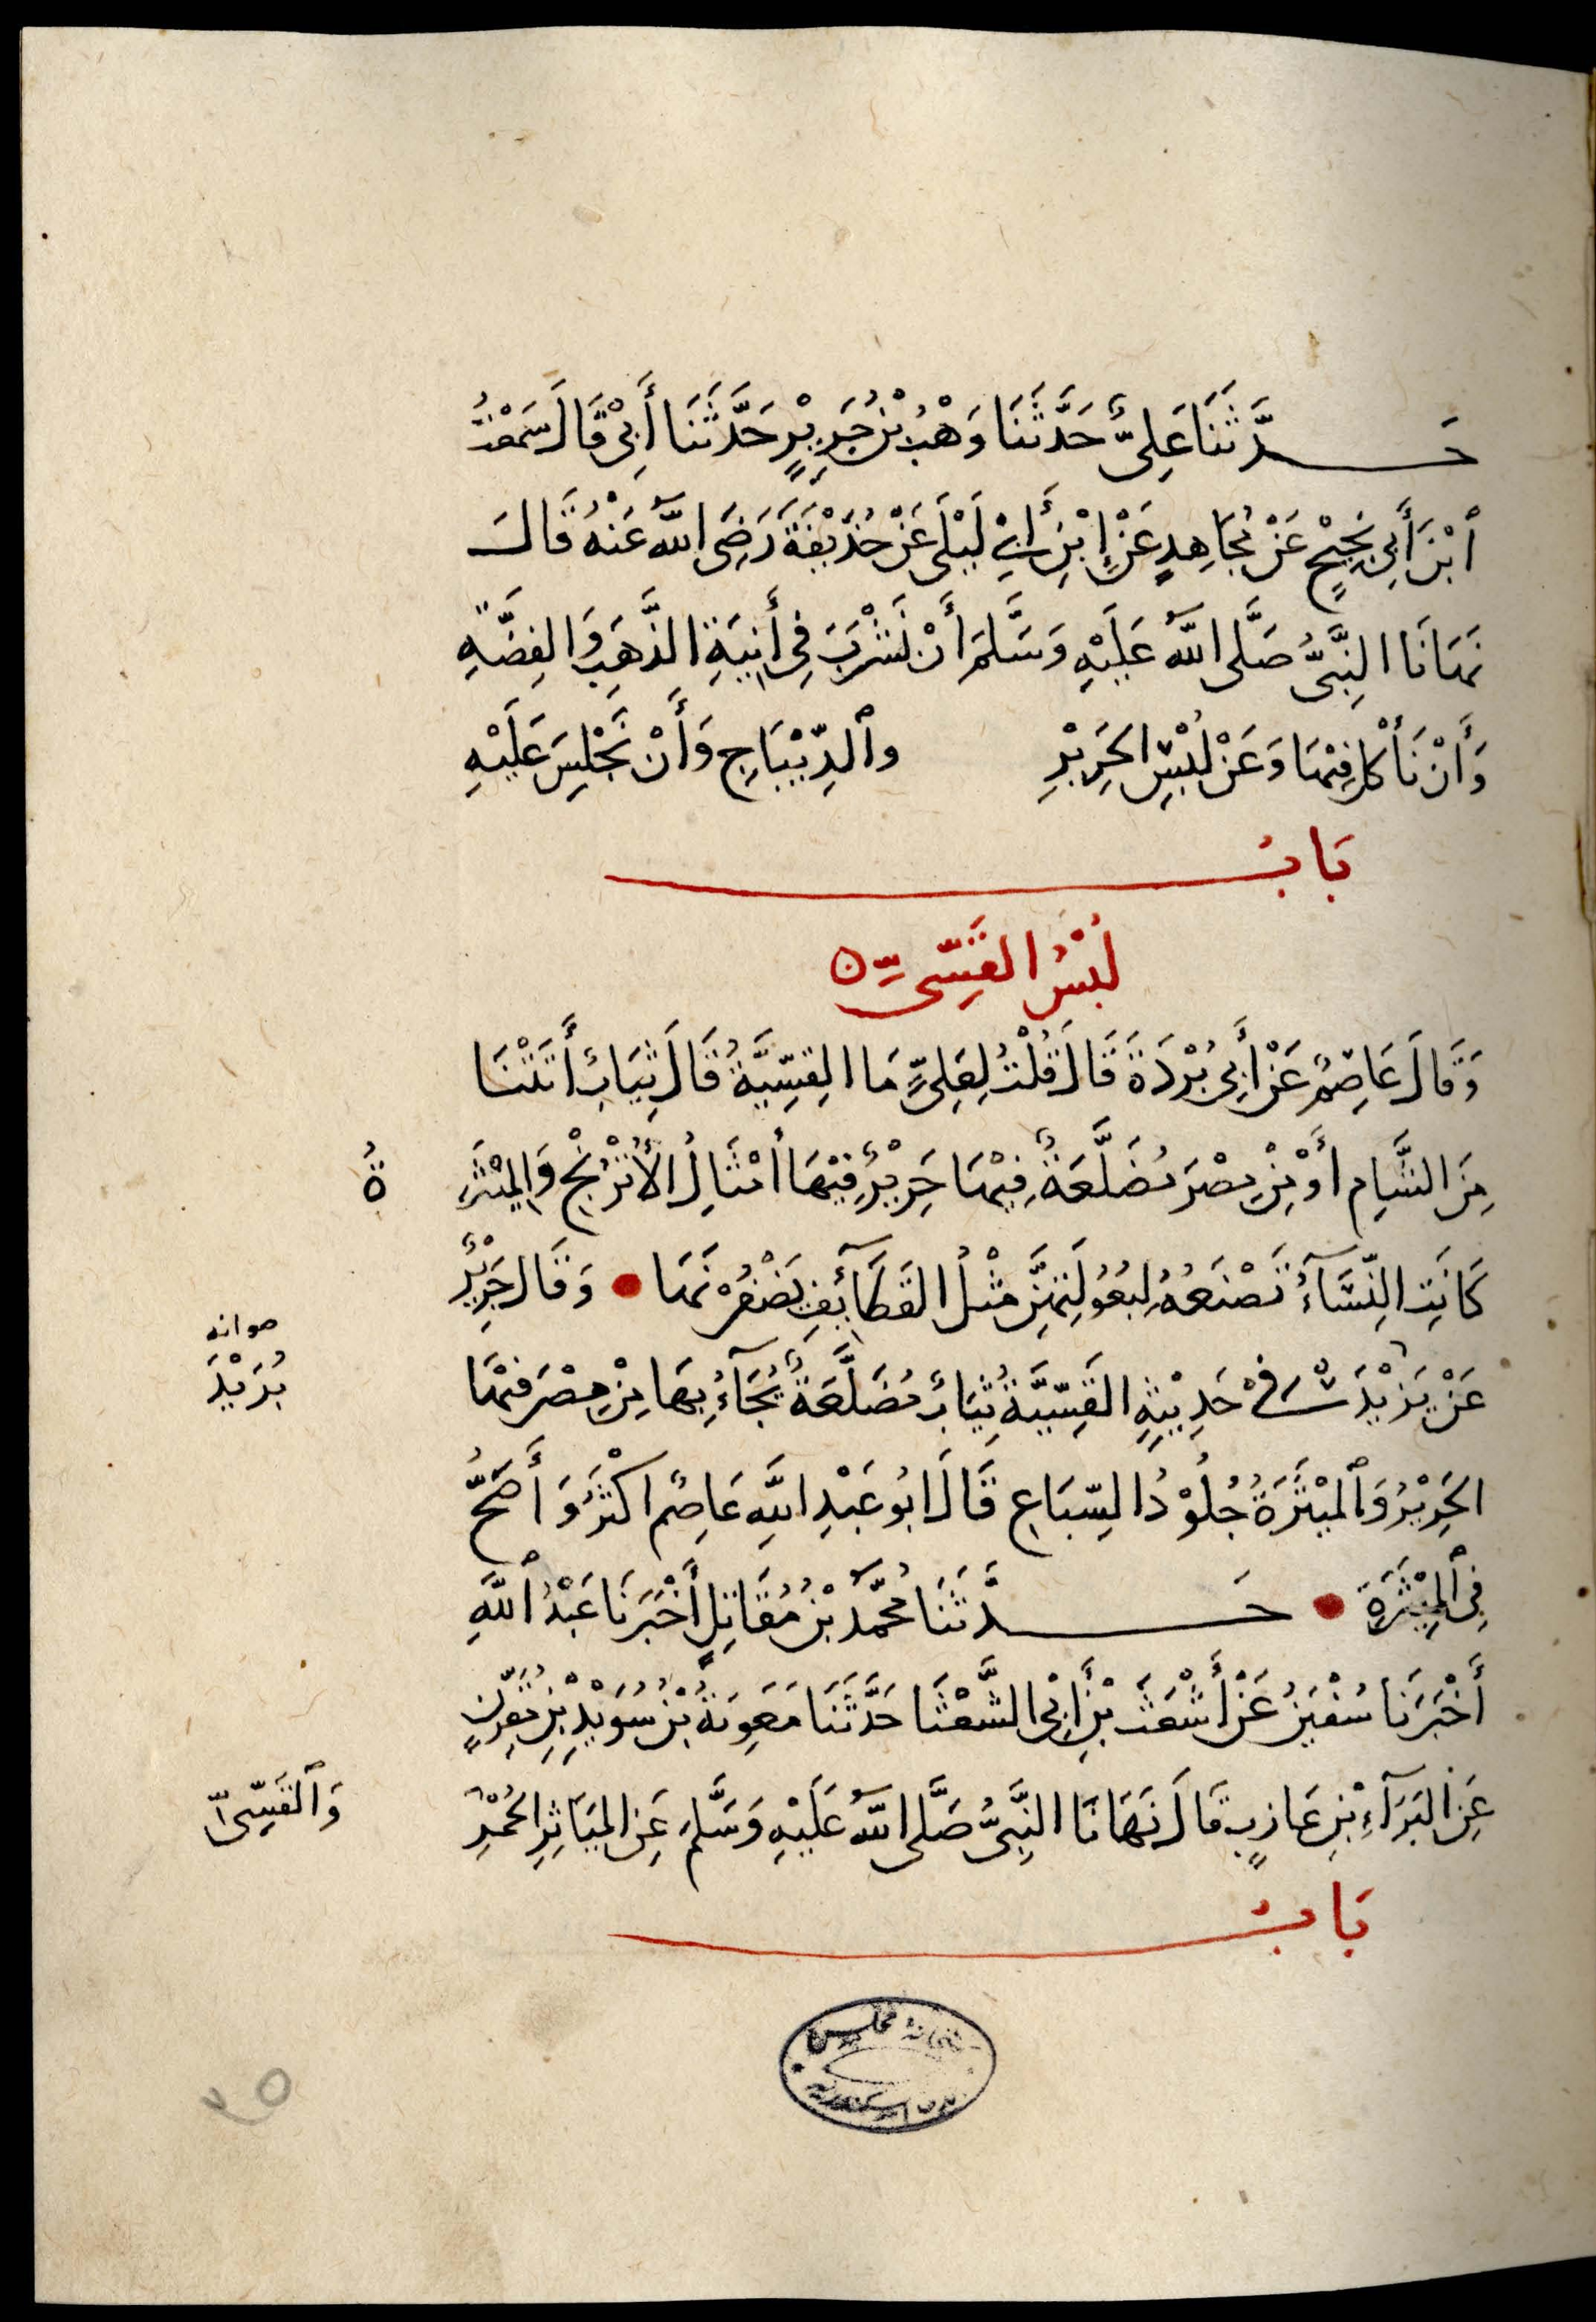 حَدَّثَنَا عَلِىٌّ حَدَّثَنَا وَهْبُ بْنُ جَرِيْرٍ حَدَّثَنَا أَبِىْ قَالَ سَمِعْتُ
ٱبْنَ أَبِى نَجِيْحٍ عَنْ مُجَاهِدٍ عَنْ إِبْنِ أَبِىْ لَيْلَى عَنْ حُذَيْفَةَ رَضِىَ اللّٰهُ عَنْهُ قَالَ
نَهَانَا النَّبِىُّ صَلَّى اللّٰهُ عَلَيْهِ وَسَلَّمَ أَنْ نَشْرَبَ فِى أَنِيَةِ الذَّهَبِ وَالفِضَّةِ
وَأَنْ نَأْكُلَ فِيْهَا وَعَنْ لُبْسِ الحَرِيْرِ وٱلدِّيْبَاجِ وَأَنْ نَجْلِسَ عَلَيْهِ
بَابُ
لُبْسُ القَسِّىِّ ن
وَقَالَ عَاصِمٌ عَنْ أَبِى بُرْدَةَ قَالَ قُلْتُ لِعَلِىٍّ مَا القِسِّيَّةُ قَالَ ثِيَابٌ أَتَتْنَا
مِنَ الشَّامِ أَوْ مِنْ مِصْرَ مُضَلَّعَةٌ فِيْهَا حَرِيْرٌ فِيْهَا أَمْثَالُ الأُتْرُنْجِ وَالمِيْثَرَ ةُ
كَانَتِ النِّسَآءُ تَصْنَعُهُ لِبُعُوْلَتِهِنَّ مِثْلُ القَطَآئِفِ يَصْفُرْنَهَا وَقَالَ جَرِيْرٌ
عَنْ يَزِيْدَ فِىْ حَدِيْثِهِ القَسِّيَّةُ ثِيَابٌ مُضَلَّعَةٌ يُجَآءُ بِهَا مِنْ مِصْرَ فِيْهَا
صوابه
بُرَيْدَ
الحَرِيْرُ وَٱلمِيْثَرَةُ جُلُوْدُ السِّبَاعِ قَالَ ابُو عَبْدِ اللّٰهِ عَاصِمٌ اكْثَرُ وَأَصَحُّ
فِى ٱلمِيْثَرَةِ حَدَّثَنَا مُحَمَّدُ بْنُ مُقَاتِلٍ أَخْبَرَنَا عَبْدُ ٱللّٰهِ
أَخْبَرَنَا سُفْيٰنُ عَنْ أَشْعَثَ بْنِ أَبِىْ الشَّعْثَا حَدَّثَنَا مَعٰوِيَةُ بْنُ سُوَيْدِ بْنِ مُقَرِّنٍ
عَنِ البَرَآءِ بْنِ عَازِبٍ قَالَ نَهَانَا النَّبِىُّ صَلَّى اللّٰهُ عَلَيْهِ وَسَلَّمَ عَنِ المَيَاثِرِ الحُمْرِ
وَٱلقَسِّىِّ
بَابُ